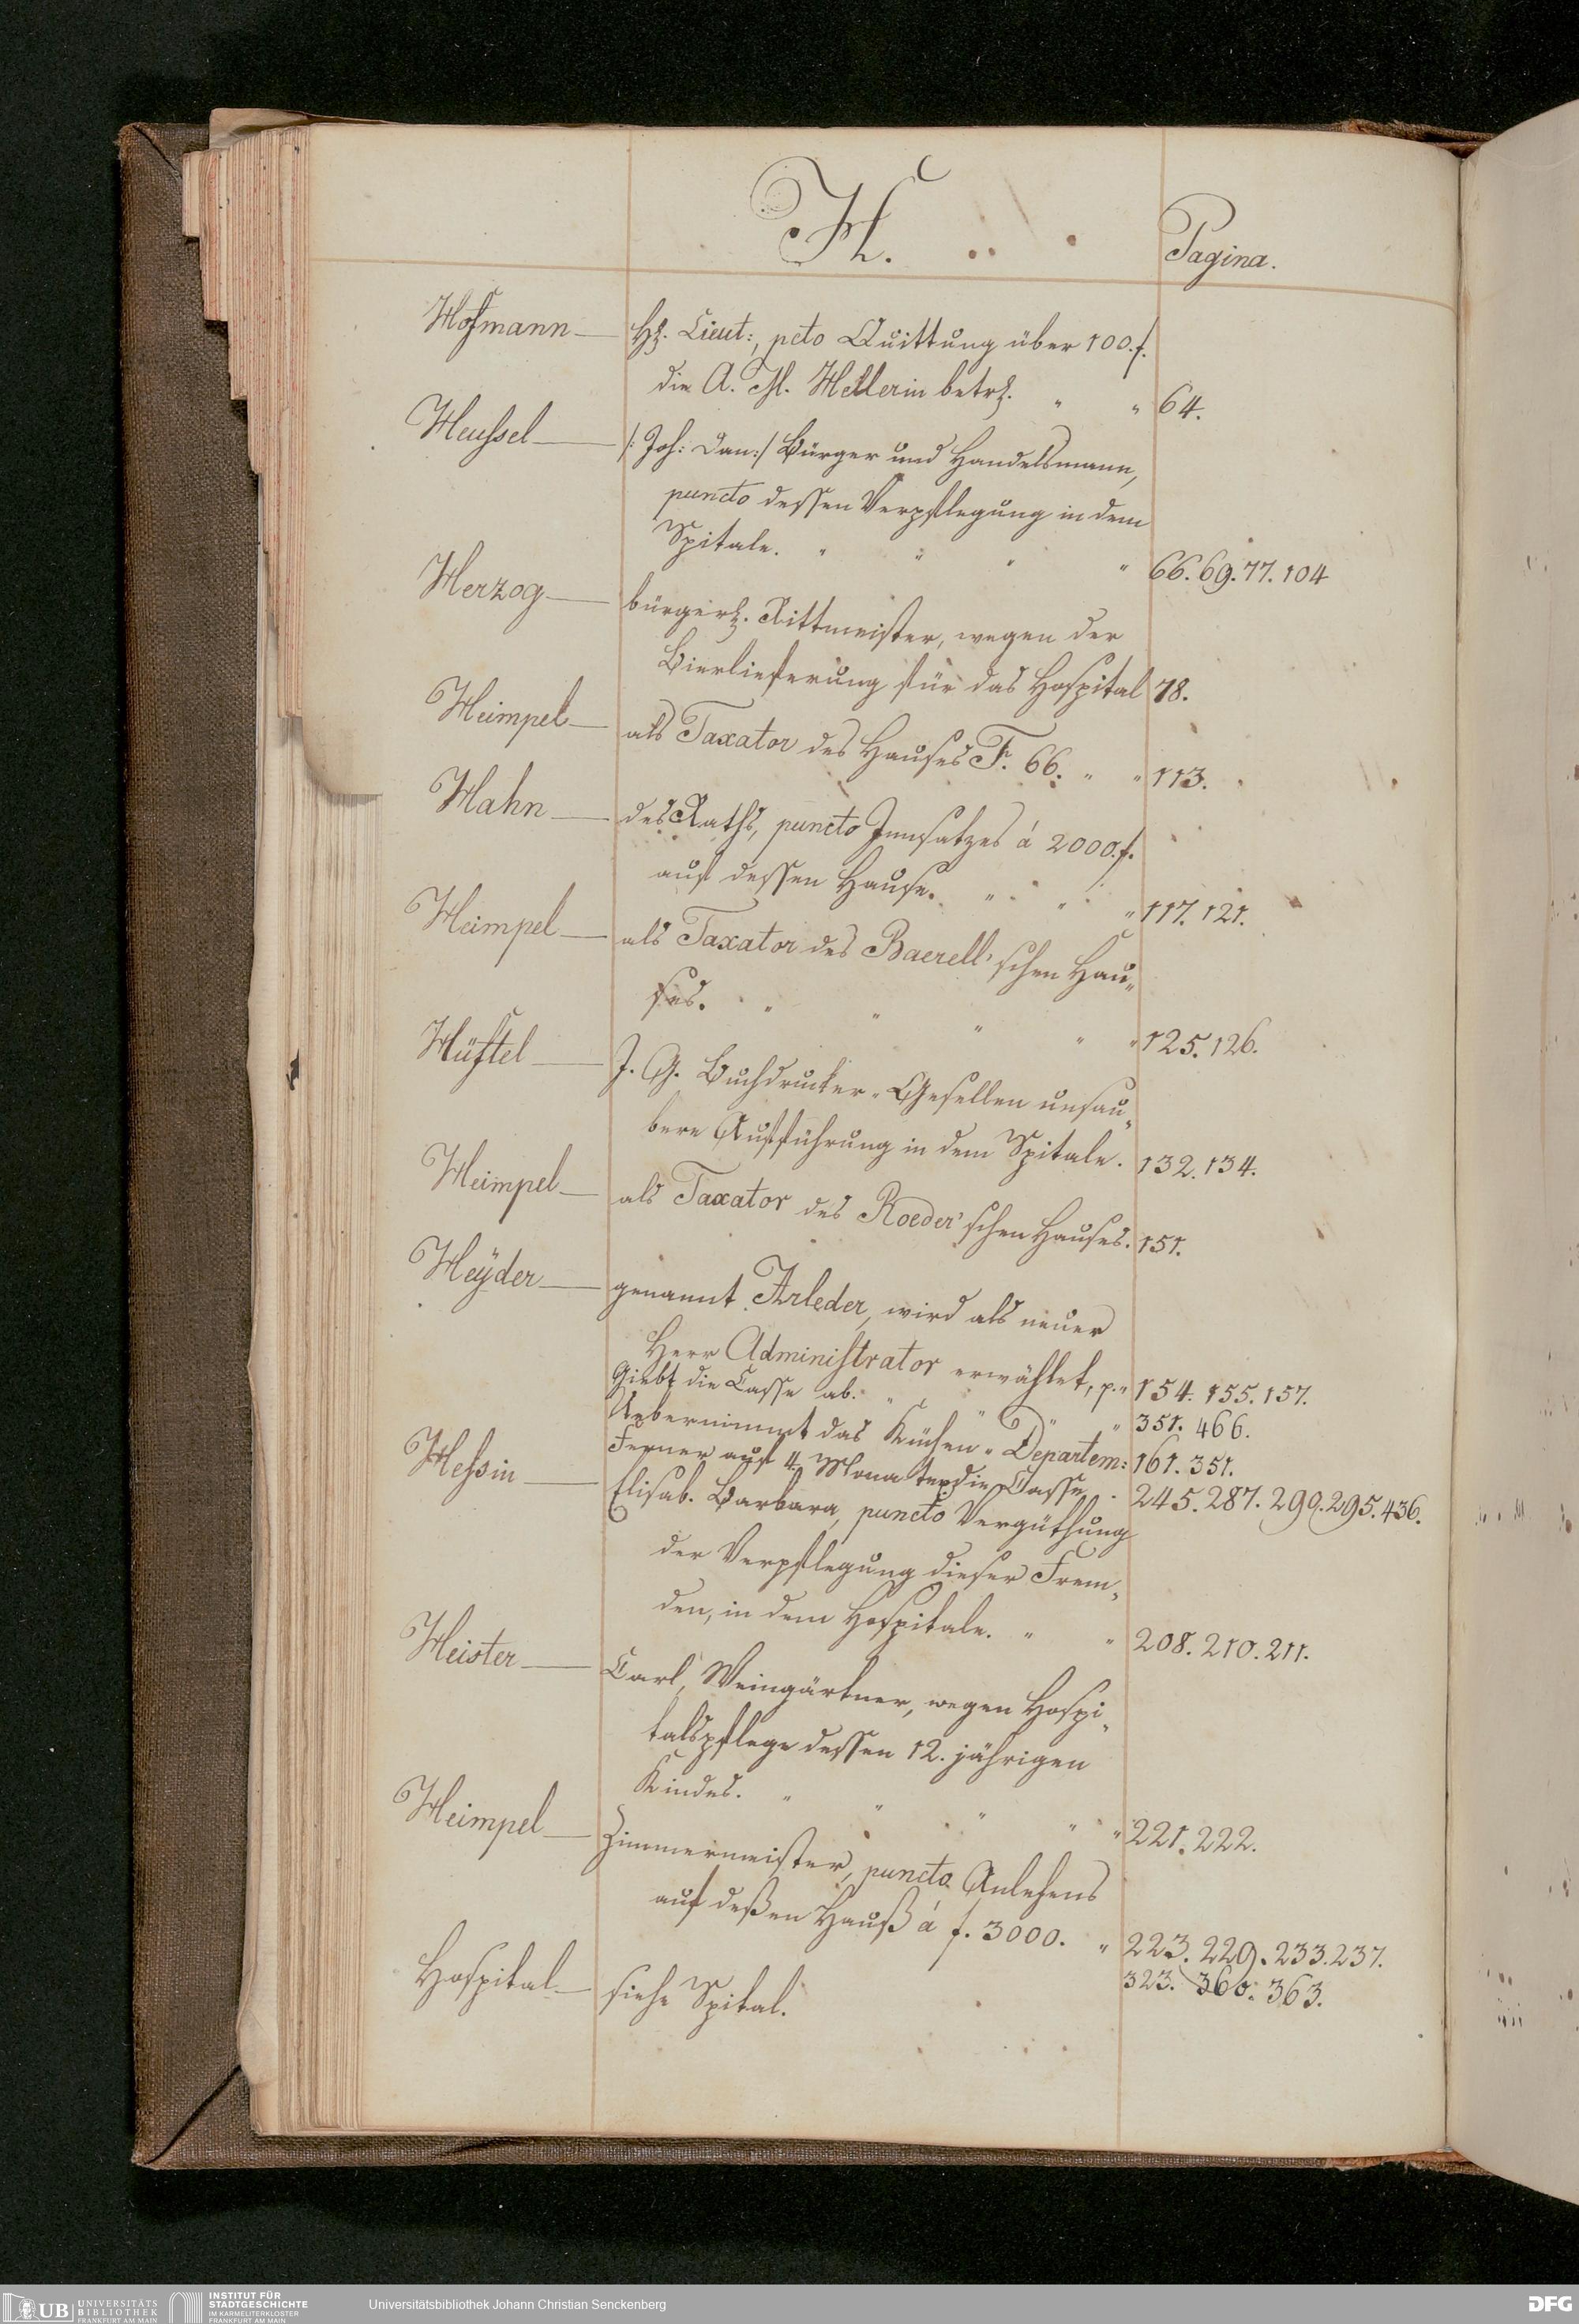 H.
Pagina.
Hofmann — H. Lieut:, pcto Quittung über 100.f.
die A. M. Hellerin betr. " " 64.
Heussel — /: Joh: Dan:/ Bürger und Handelsmann,
puncto dessen Verpflegung in dem
Spitale. " " " " 66. 69. 77. 104
Herzog — bürgerl. Rittmeister, wegen der
Bierlieferung für das Hospital 78.
Heimpel — als Taxator des Hauses F. 66. " " 113.
Hahn — des Raths, puncto Innsatzes á 2000.f.
auf dessen Hause. " " " 117. 121.
Heimpel — als Taxator des Baerell'schen Hau„
ses. " " " " " 125. 126.
Hüftel — J. G. Buchdrucker-Gesellen unsau„
bere Aufführung in dem Spitale. 132. 134.
Heimpel — als Taxator des Roeder'schen Hauses. 151.
Heÿder — genannt Arleder, wird als neuer
Herr Administrator erwählet, p. " 154. 155. 157.
Giebt die Casse ab. " " " " 351. 466.
Uebernimmt das Küchen-Departem: 161. 351.
Ferner auf 4. Monate die Casse. 245. 287. 290. 295. 436.
Hessin — Elisab. Barbara, puncto Vergüthung
der Verpflegung dieser Frem„
den, in dem Hospitale. " " 208. 210. 211.
Heister — Carl, Weingärtner, wegen Hospi„
talspflege dessen 12. jährigen
Kindes. " " " " " 221. 222.
Heimpel — Zimmermeister, puncto Anlehens
auf deßen Hauß á f. 3000. " 223. 229. 233. 237.
323. 360. 363.
Hospital — siehe Spital.
UB UNIVERSITÄTS
BIBLIOTHEK
FRANKFURT AM MAIN
INSTITUT FÜR
STADTGESCHICHTE
IM KARMELITERKLOSTER
FRANKFURT AM MAIN
Universitätsbibliothek Johann Christian Senckenberg
DFG